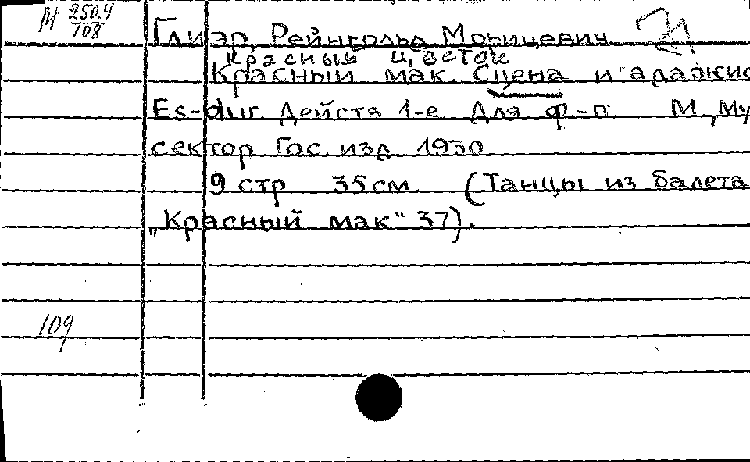 М 250.4
108
Глиэр, Рейнгольд Морицевич.
Красный цветок
Красный мак. Сцена и адажио
Es-dur. Действ 1-е. Для ф-п. М., Му
сектор Гос. изд. 1930
9 стр 35 см (Танцы из балета
„Красный мак" 37).
109